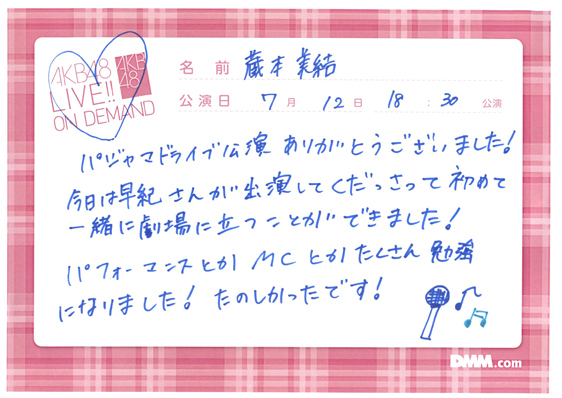 AKB48
LIVE!!
ON DEMAND
AKB
48
名前 蔵本美結
公演日 7月 12日 18:30 公演
パジャマドライブ公演 ありがとうございました!
今日は早紀さんが出演してくだっさって初めて
一緒に劇場に立つことができました!
パフォーマンスとか MCとかたくさん勉強
になりました! たのしかったです!
DMM.com